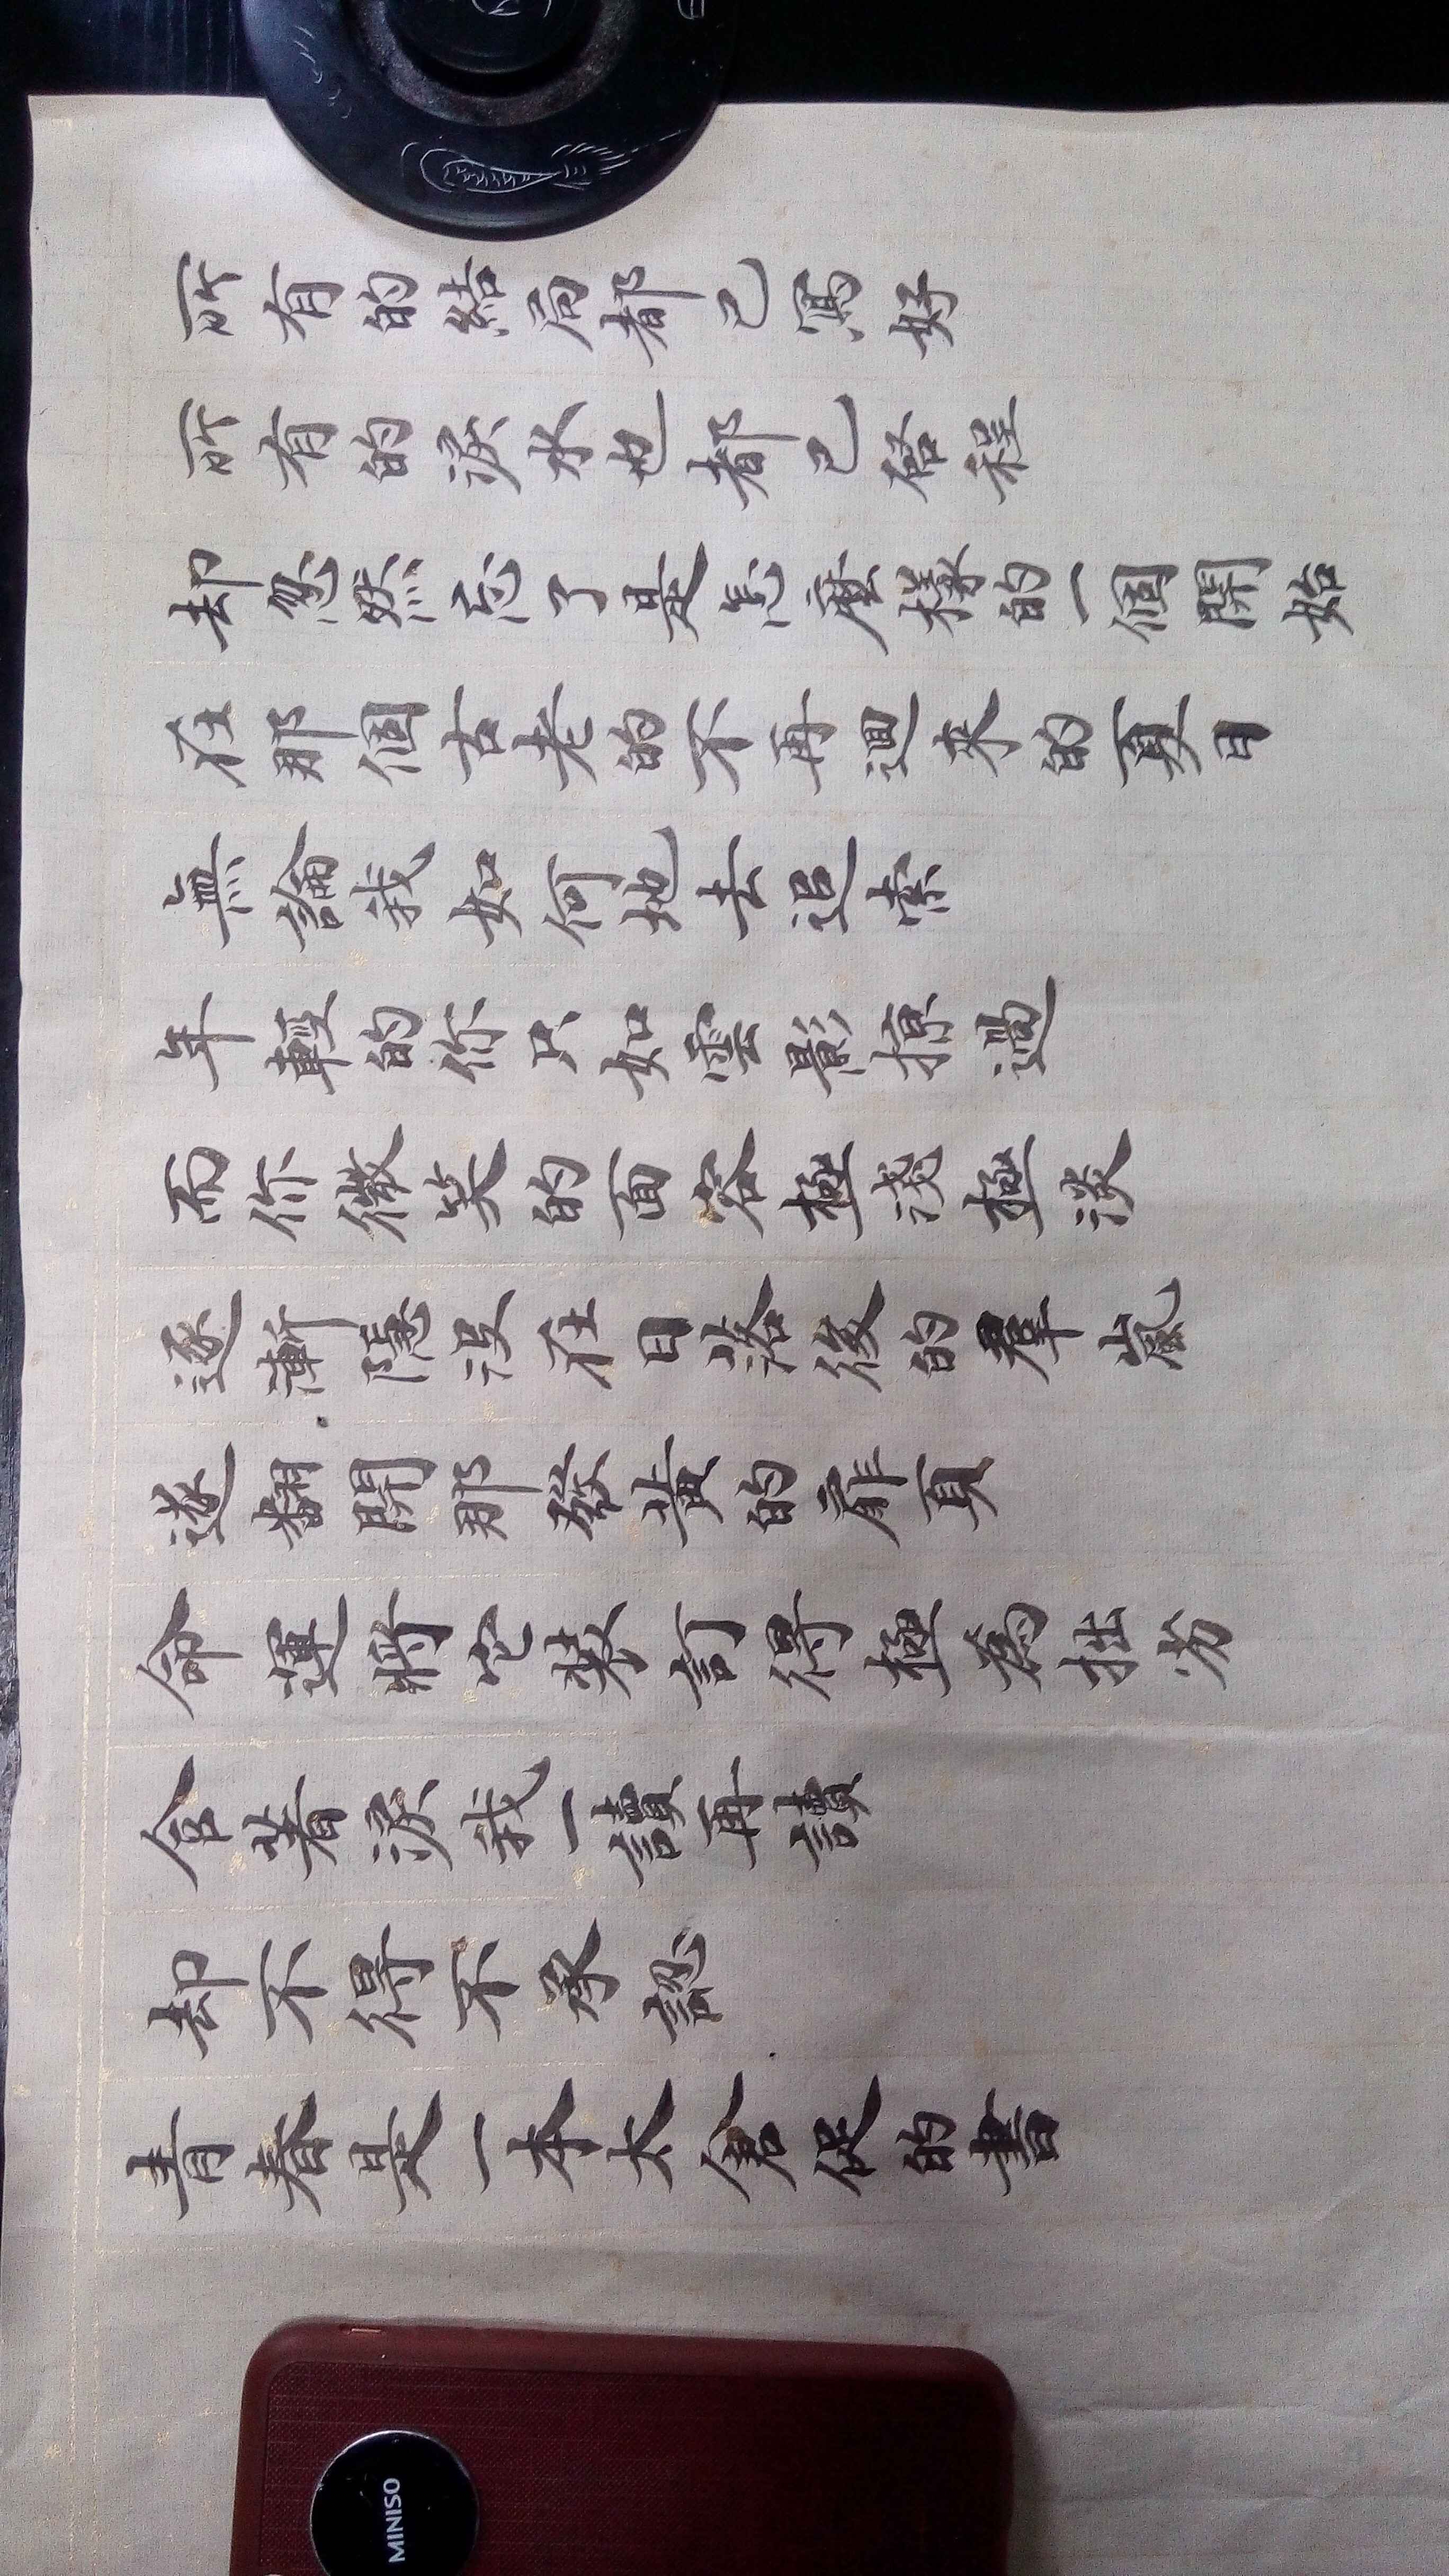 所有的結局都已寫好
所有的淚水也都已啓程
却忽然忘了是怎麼樣的一個開始
在那個古老的不再迴來的夏日
無論我如何地去追索
年輕的你只如雲影掠過
而你微笑的面容極淺極淡
逐漸隱沒在日落後的羣嵐
遂翻開那發黃的扉頁
命運將它裝訂得極為拙劣
含着淚我一讀再讀
却不得不承認
青春是一本太倉促的書
MINISO